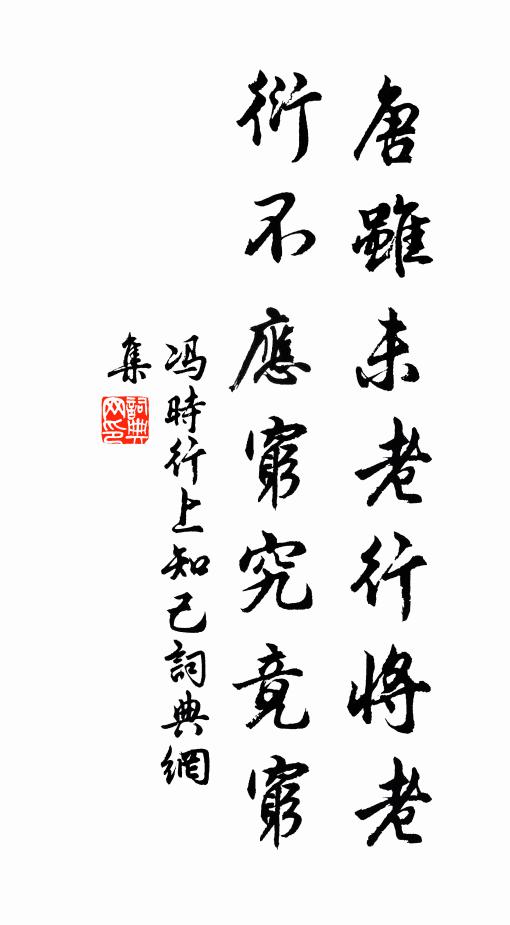 唐雖未老行將老
衍不應窮究竟窮
冯時行上知己詞典網
集
詞典
网印